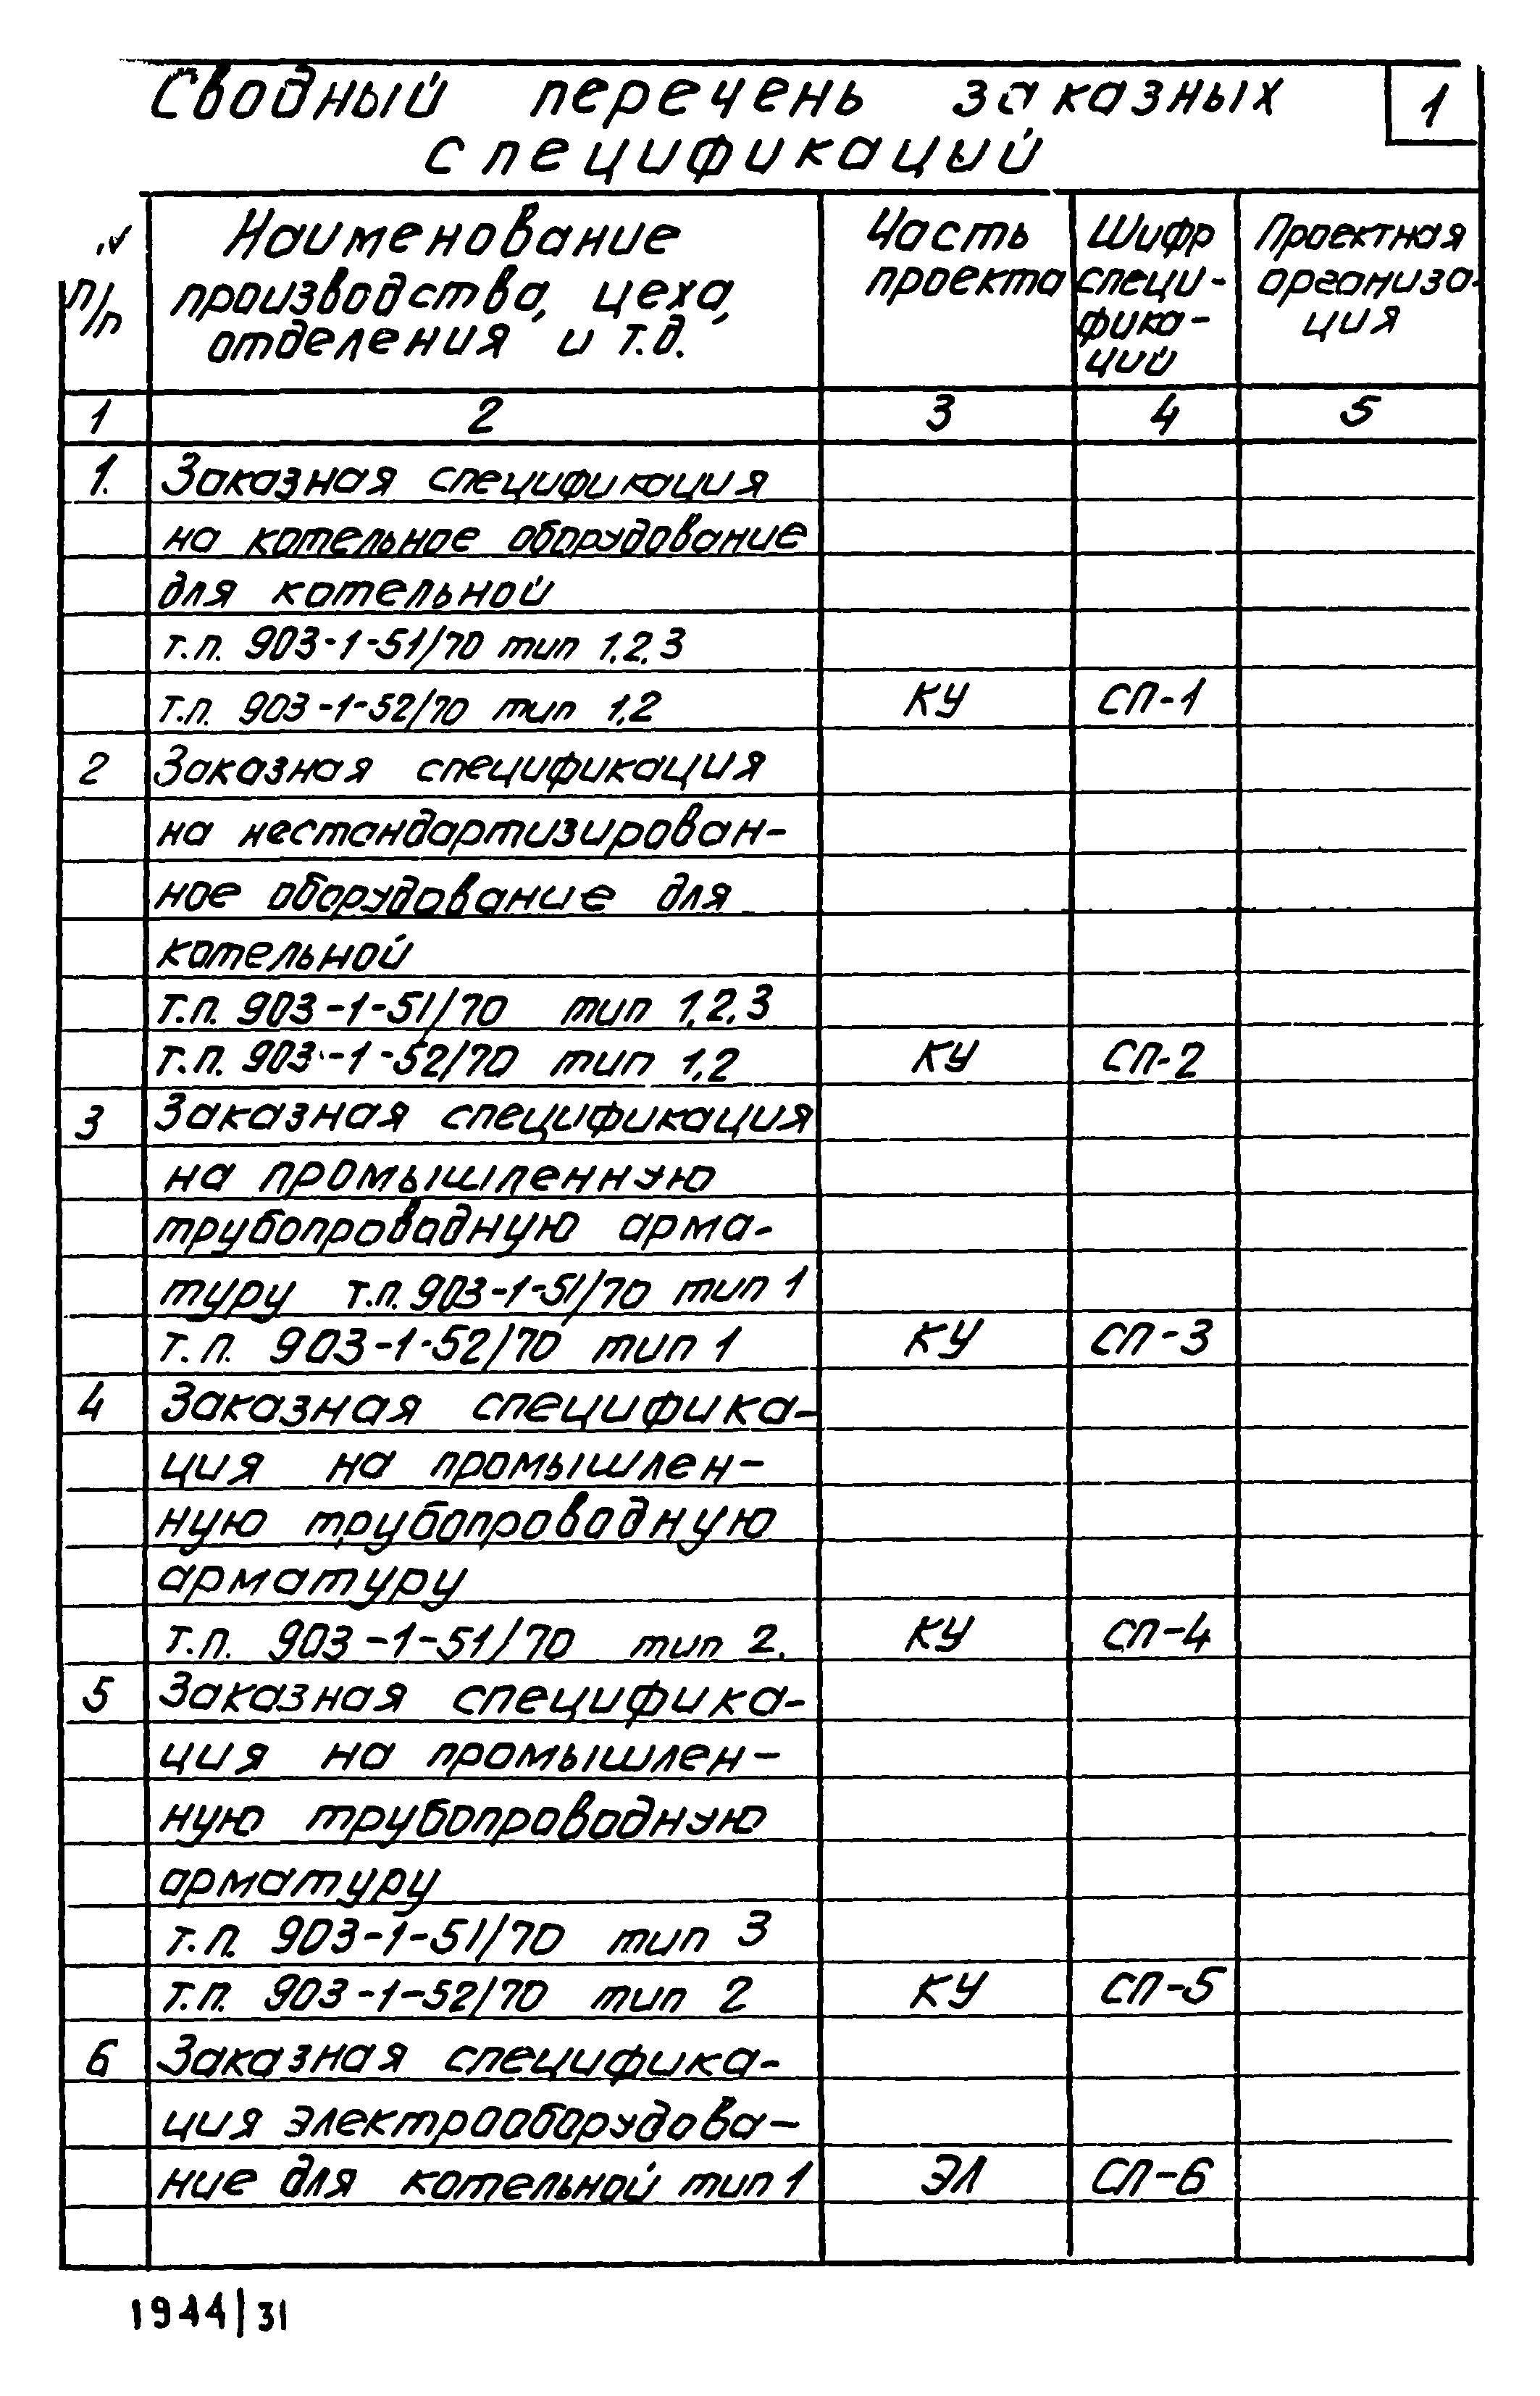 Сводный перечень заказных
спецификаций
1
№ п/п
Наименование
производства, цеха,
отделения и т.д.
Часть
проекта
Шифр
специ-
фика-
ций
Проектная
организа-
ция
1 2 3 4 5
1. Заказная спецификация
на котельное оборудование
для котельной
т.п. 903-1-51/70 тип 1,2,3
т.п. 903-1-52/70 тип 1,2 КУ СП-1
2 Заказная спецификация
на нестандартизирован-
ное оборудование для
котельной
т.п. 903-1-51/70 тип 1,2,3
т.п. 903-1-52/70 тип 1,2 КУ СП-2
3 Заказная спецификация
на промышленную
трубопроводную арма-
туру т.п. 903-1-51/70 тип 1
т.п. 903-1-52/70 тип 1 КУ СП-3
4 Заказная специфика-
ция на промышлен-
ную трубопроводную
арматуру
т.п. 903-1-51/70 тип 2. КУ СП-4
5 Заказная специфика-
ция на промышлен-
ную трубопроводную
арматуру
т.п. 903-1-51/70 тип 3
т.п. 903-1-52/70 тип 2 КУ СП-5
6 Заказная специфика-
ция электрооборудова-
ние для котельной тип 1 ЭЛ СП-6
1944/31